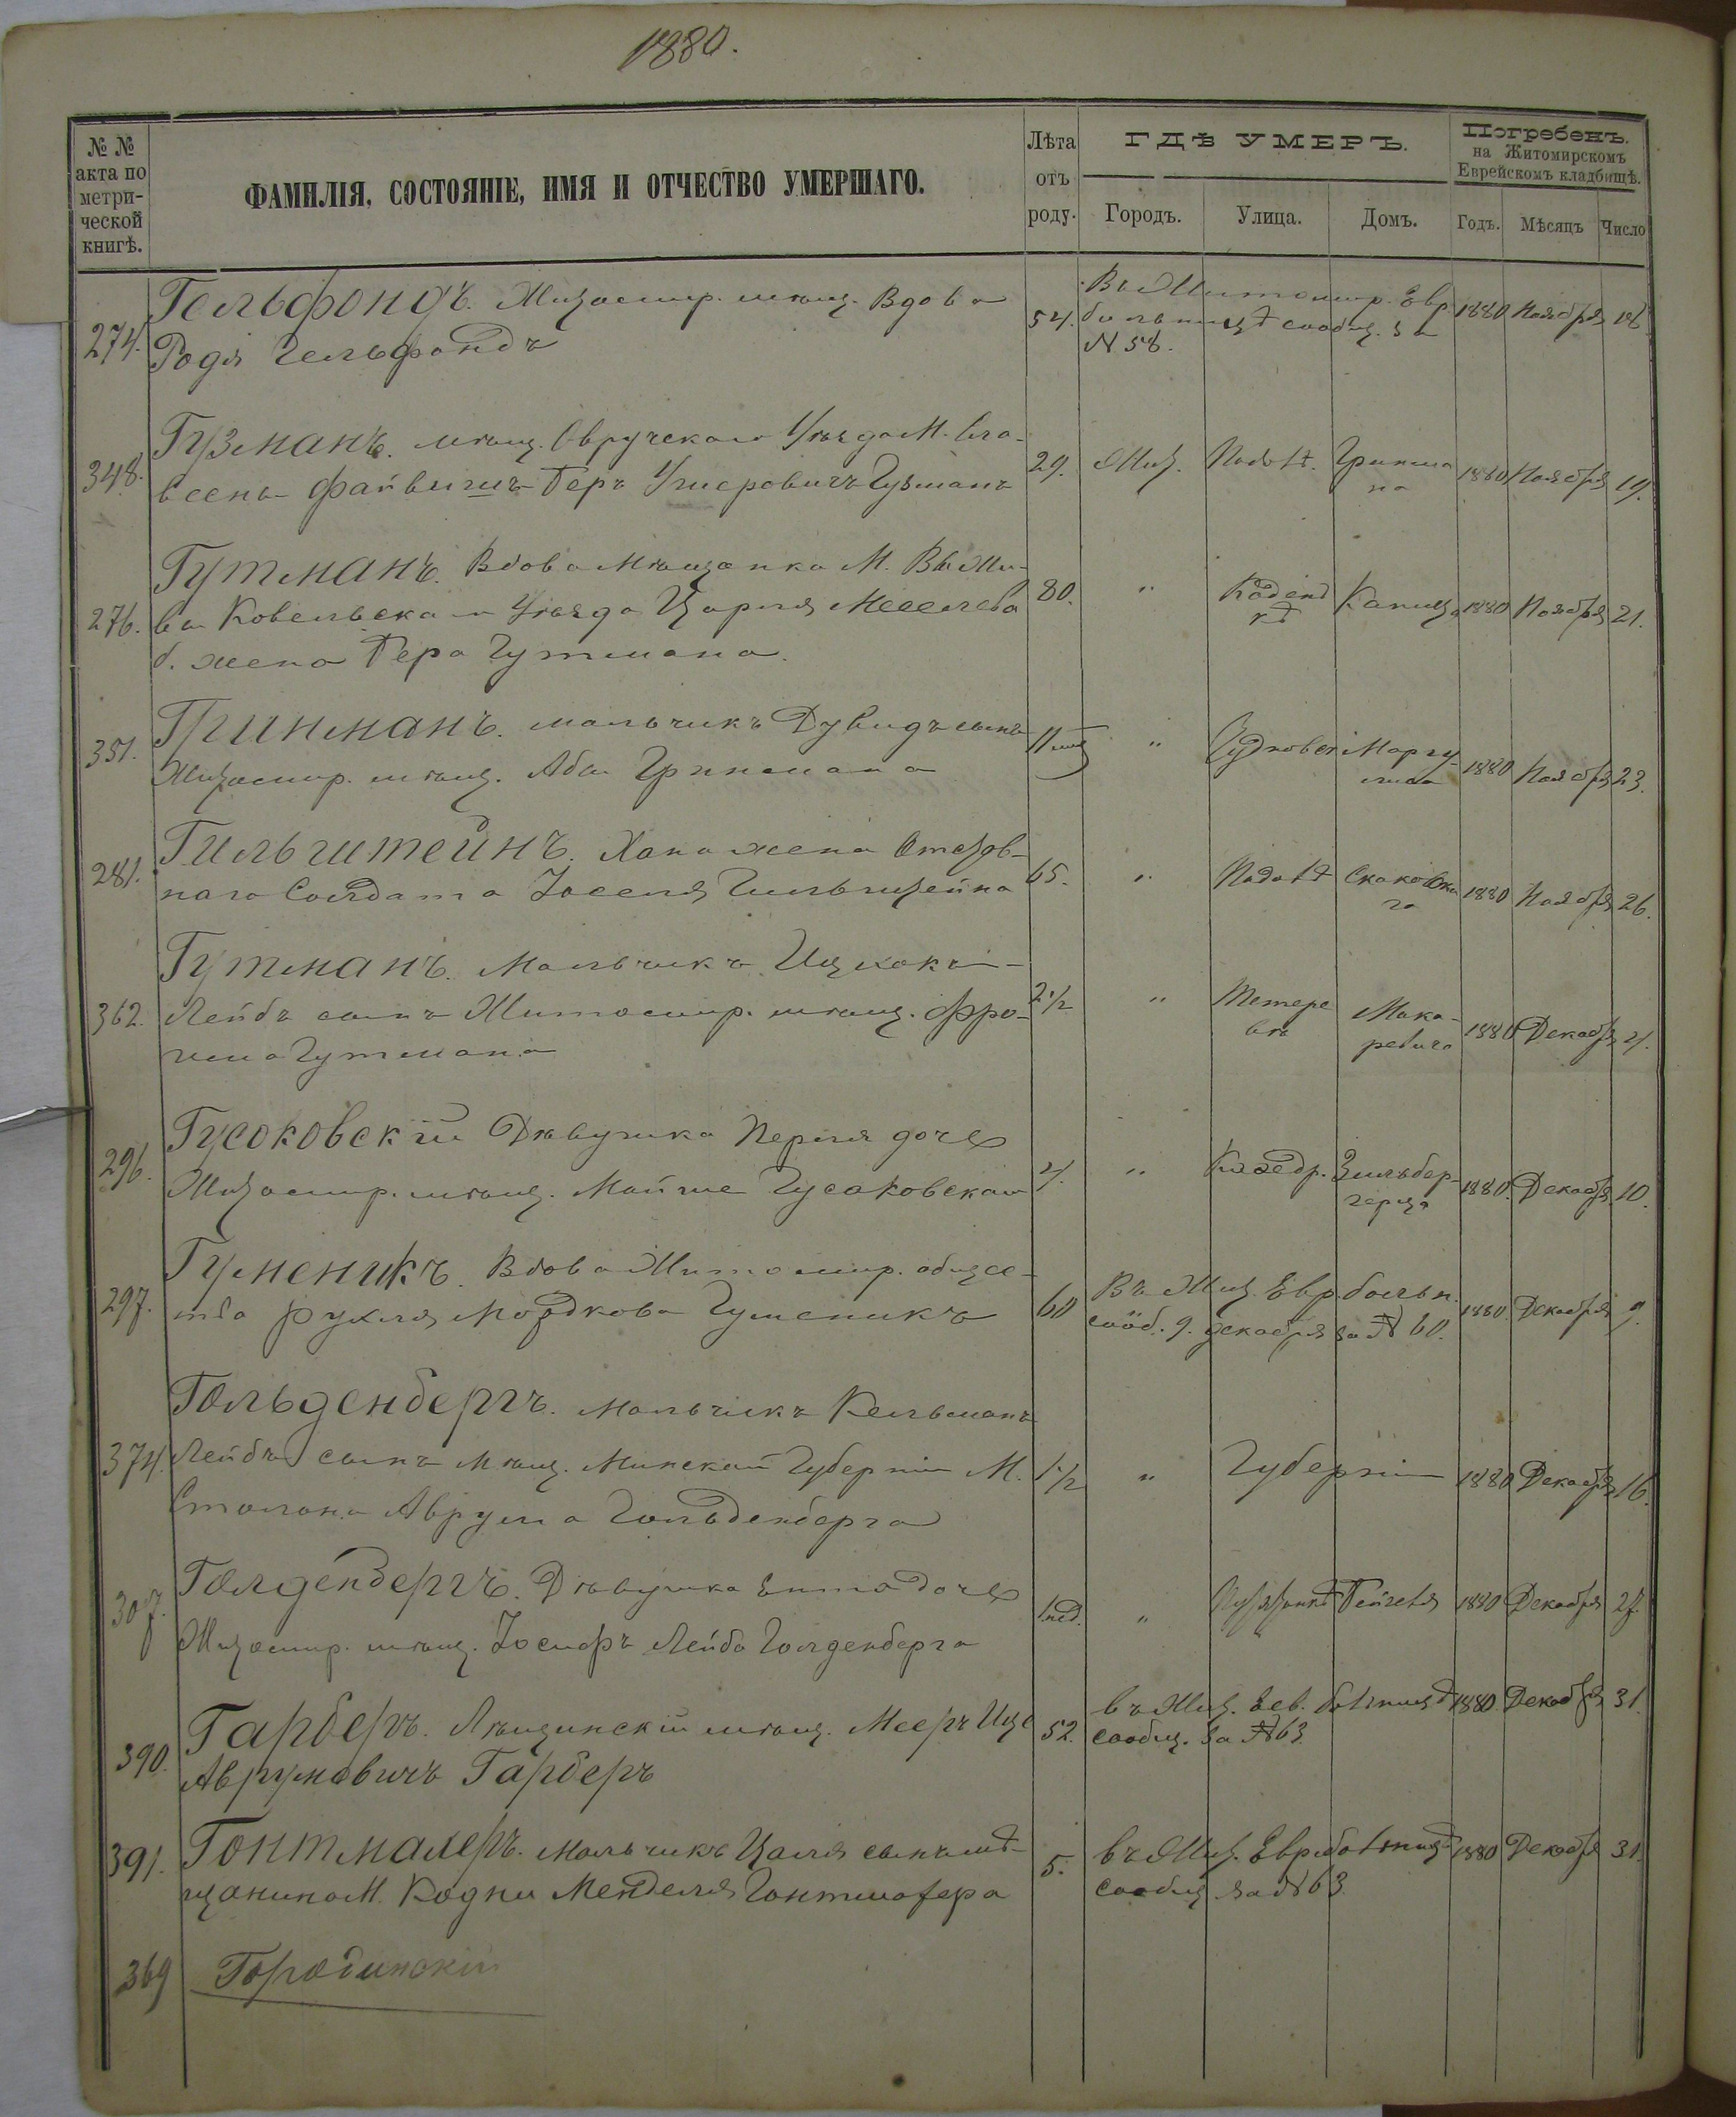 1880.
№ №
акта по
метри-
ческой
книгѣ.
ФАМИЛІЯ, СОСТОЯНІЕ, ИМЯ И ОТЧЕСТВО УМЕРШАГО.
Лѣта
отъ
роду.
ГДѢ УМЕРЪ.
Городъ. Улица. Домъ.
Погребенъ.
на Житомирскомъ
Еврейскомъ кладбищѣ.
Годъ. Мѣсяцъ Число
274. Гельфондъ. Житомир. мѣщ. Вдова
Родя Гельфондъ
54. Въ Житомир. Евр.
больницѣ сообщ. за
№ 58.
1880 Ноября 18
348. Гузманъ. мѣщ. Овручскаго Уѣзда М. Сло-
весны Файвишъ Беръ Гузманъ
29. Жит. Подол. 1880 Ноября 19.
276. Гутманъ. Вдова Мѣщанка М.
Ковельскаго Уѣзда
б. жена Бера Гутмана.
80. " 1880 Ноября 21.
351. Гринманъ. мальчикъ Дувидъ сынъ
Житомир. мѣщ. Абы Гринмана
11 " Чудновск Маргу-
лиса
1880 Ноября 23.
281. Гильштейнъ. Хана жена Отстав-
наго Солдата Іоселя Гильштейна
65. " Подол. Скаковска
го
1880 Ноября 26.
362. Гутманъ. Мальчикъ Ицхокъ-
Лейбъ сынъ Житомир. мѣщ. Фро-
има Гутмана
2 1/2 " Тетере
въ Мака-
ревича
1880 Декабря 4.
296. Гусоковскій Дѣвушка Перля дочь
Житомир. мѣщ. Мойше Гусаковскаго
4. " Каѳедр. Зильбер-
герца
1880. Декабря 10.
297. Гуменикъ. Вдова Житомир. общес-
тва Рухля Мордкова Гуменикъ
60 Въ Жит. Евр. больн.
сооб. 9. декабря за № 60.
1880. Декабря 9.
374. Гольденбергъ. Мальчикъ Кельманъ
Лейбъ сынъ Мѣщ. Минской Губерніи М.
Столина Аврума Гольденберга
1 1/2 " Губерніи 1880 Декабря 16.
307. Голденбергъ. Дѣвушка Ента дочь
Житомир. мѣщ. Іосифъ Лейба Голденберга
1 нед. " Бейгеля 1880 Декабря 27.
390. Гарберъ. мѣщ. Мееръ Ице
Аврумовичъ Гарберъ
52. въ Жит. Евр. больницѣ
сообщ. за №63.
1880. Декабря 31.
391. Гонтмахеръ. мальчикъ Цаля сынъ мѣ-
щанина М. Кодни Менделя Гонтмахера
5. въ Жит. Евр. больницѣ
сообщ за №63.
1880 Декабря 31.
369 Городинскій